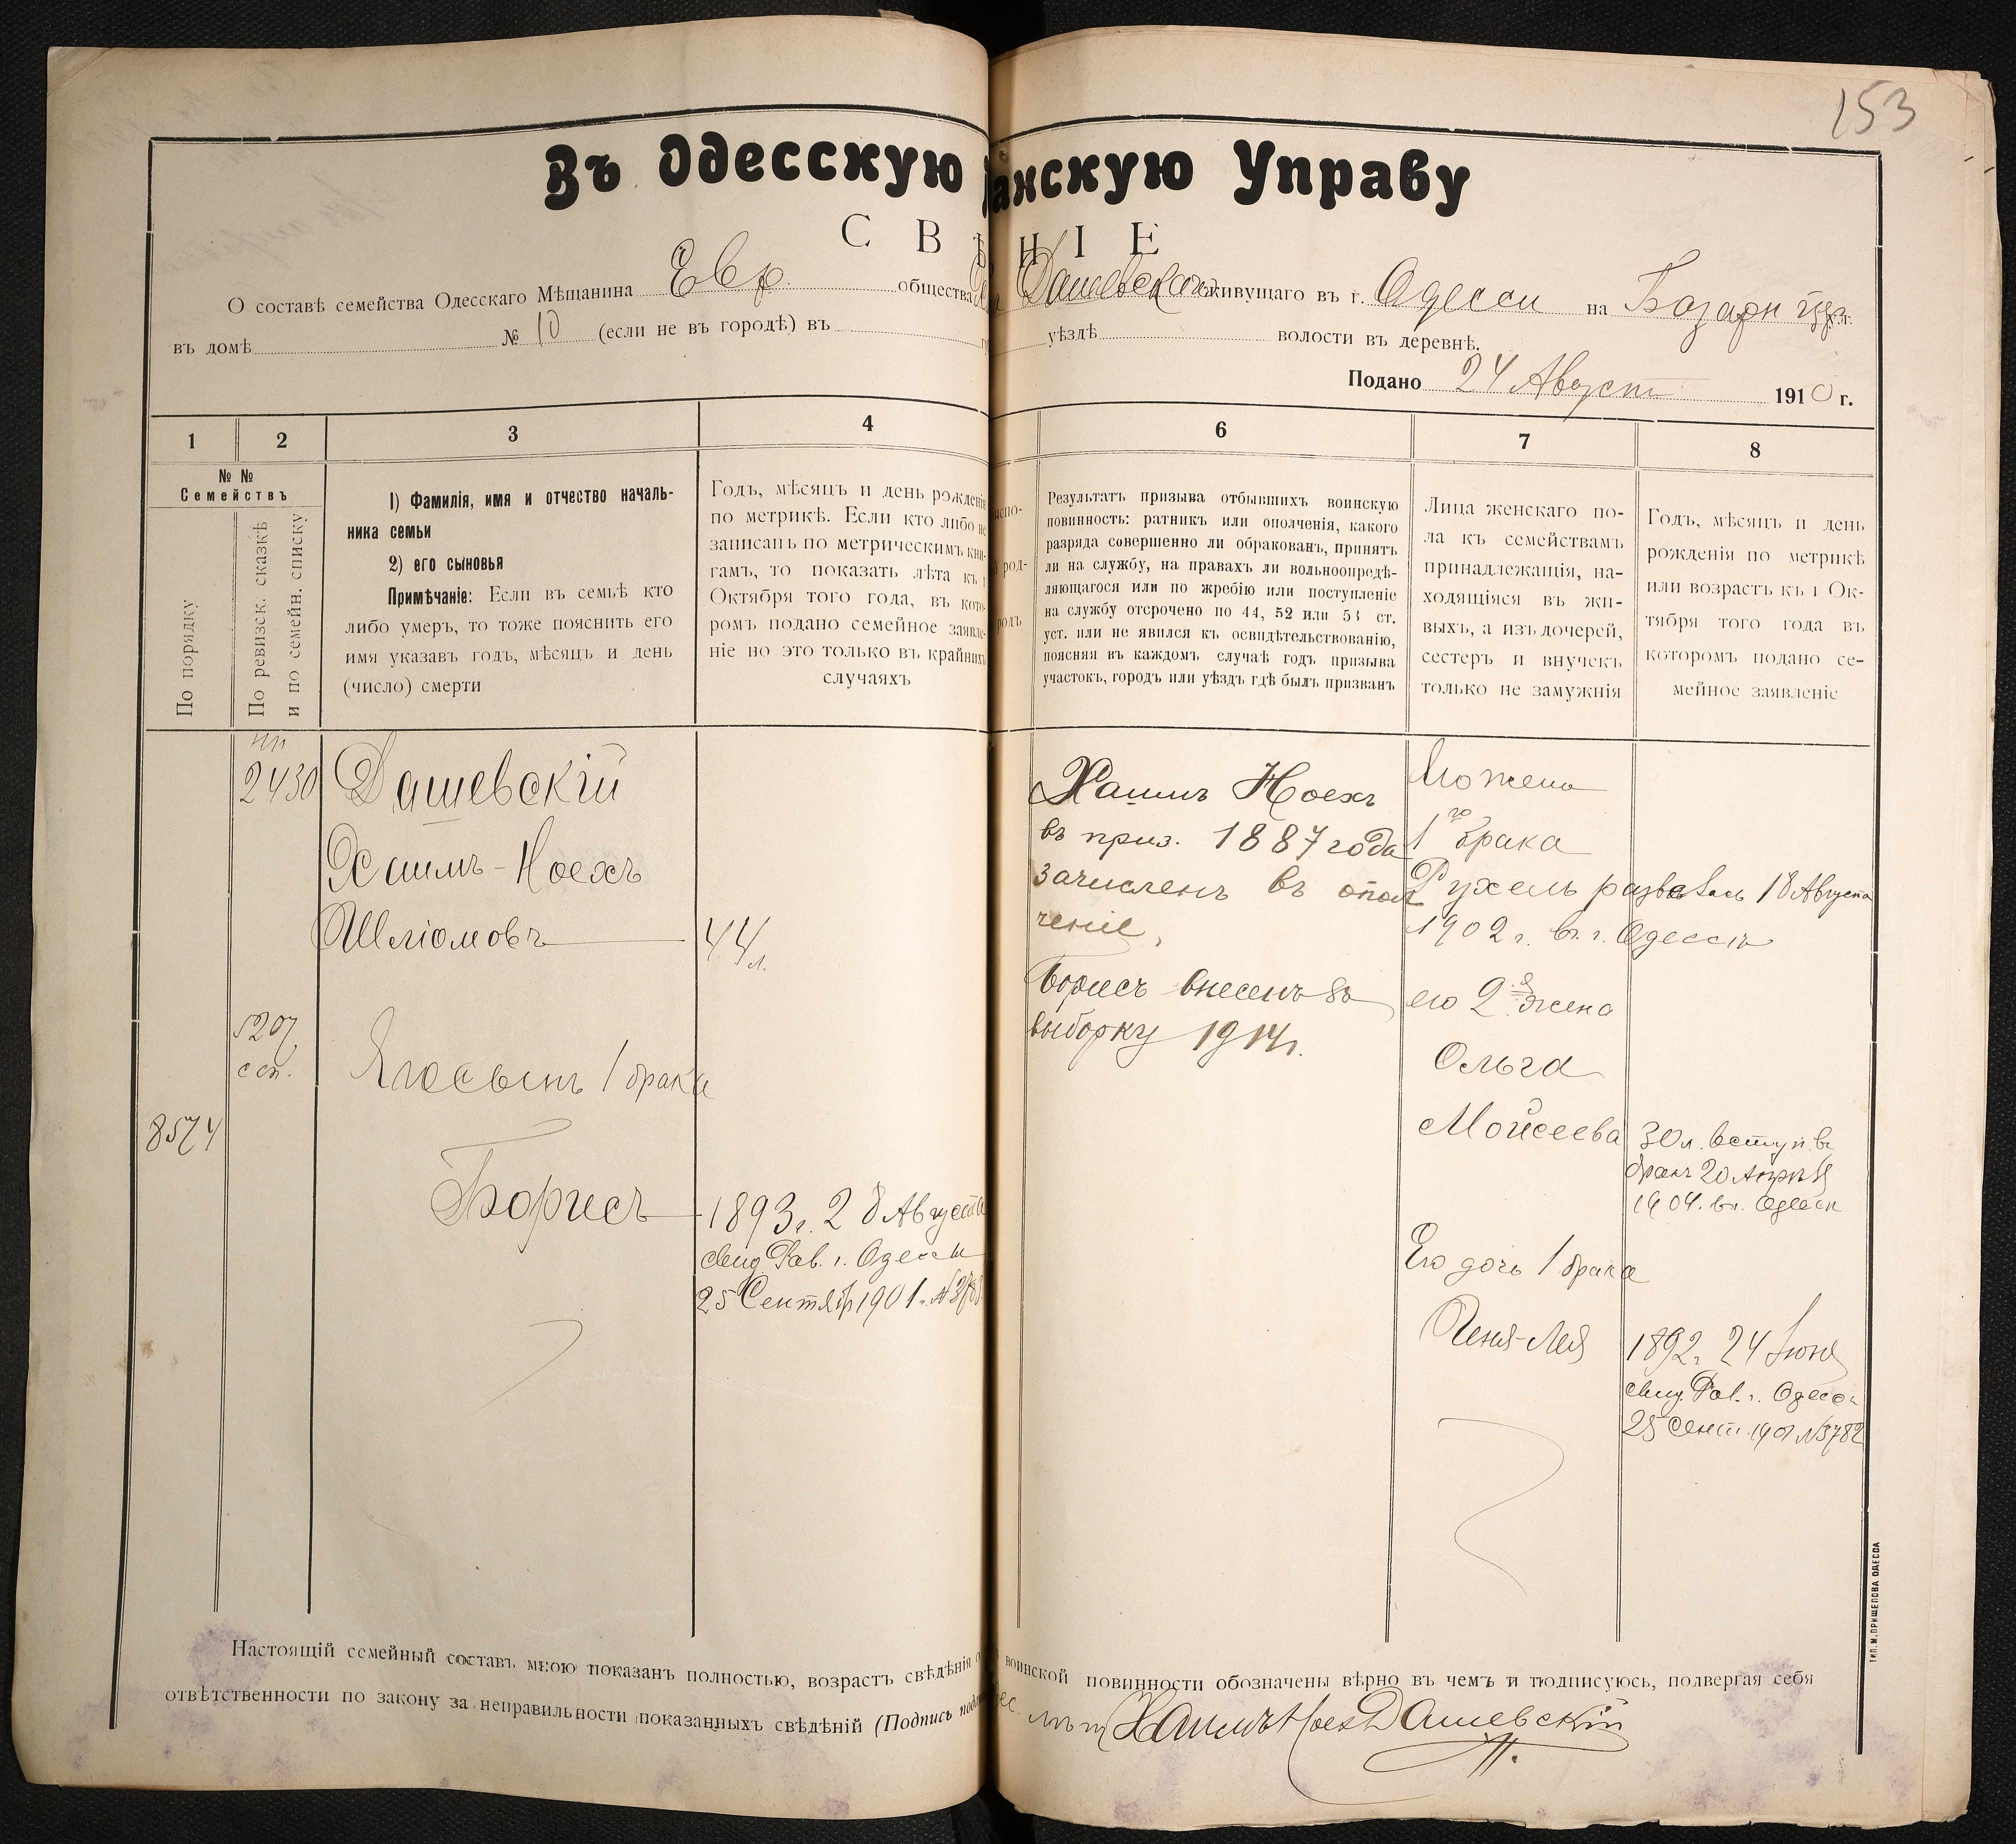 153
Въ Одесскую анскую Управу
С В Н І Е
О составѣ семейства Одесскаго Мѣщанина Евр. общества Дашевскаго живущаго въ г. Одессы на Базарн ул.
въ домѣ № 10 (если не въ городѣ) въ уѣздѣ волости въ деревнѣ.
Подано 24 Август 1910 г.
1 2 3 4 6 7 8
№ №
Семействъ
По порядку
По ревизск. сказкѣ
и по семейн. списку
1) Фамилія, имя и отчество началь-
ника семьи
2) его сыновья
Примѣчаніе: Если въ семьѣ кто
либо умеръ, то тоже пояснить его
имя указавъ годъ, мѣсяцъ и день
(число) смерти
Годъ, мѣсяцъ и день рожденія
по метрикѣ. Если кто либо не
записанъ по метрическимъ кни-
гамъ, то показать лѣта къ 1
Октября того года, въ кото-
ромъ подано семейное заявле-
ніе но это только въ крайнихъ
случаяхъ
Результатъ призыва отбывшихъ воинскую
повинность: ратникъ или ополченія, какого
разряда совершенно ли обракованъ, принятъ
ли на службу, на правахъ ли вольноопредѣ-
ляющагося или по жребію или поступленіе
на службу отсрочено по 44, 52 или 53 ст.
уст. или не явился къ освидѣтельствованію,
поясняя въ каждомъ случаѣ годъ призыва
участокъ, городъ или уѣздъ гдѣ былъ призванъ
Лица женскаго по-
ла къ семействамъ
принадлежащія, на-
ходящіяся въ жи-
выхъ, а изъ дочерей,
сестеръ и внучекъ
только не замужнія
Годъ, мѣсяцъ и день
рожденія по метрикѣ
или возрастъ къ 1 Ок-
тября того года въ
которомъ подано се-
мейное заявленіе
2430
Дашевскій
Хаимъ-Ноехъ
Шліомовъ
44 л.
5207
ссп.
Его сынъ 1 брака
8574
Борисъ
1893 г. 28 Августа
свид. Рав. г. Одессы
25 Сентябр 1901 г. №
Хаимъ Ноехъ
въ приз. 1887 года
зачисленъ въ опол
ченіе,
Борисъ внесенъ въ
выборку 1914 г.
Его жена
1го брака
Рухель развелась 18 Августа
1902 г. въ г. Одессѣ
его 2я жена
Ольга
Мойсеева
30 л. вступ. въ
бракъ 20 Апрѣля
1904. въ Одессѣ
Его дочь 1 брака
Геня-Лея
1892 г. 24 Іюня
свид. Рав. г. Одессы
25 Сент. 1901 № 3782
Настоящій семейный составъ мною показанъ полностью, возрастъ свѣдѣнія о воинской повинности обозначены вѣрно въ чемъ и подписуюсь, подвергая себя
отвѣтственности по закону за неправильности показанныхъ свѣдѣній (Подпись
Хаимъ Ноех Дашевскій
ТИП. М. ПРИЩЕПОВА ОДЕССА